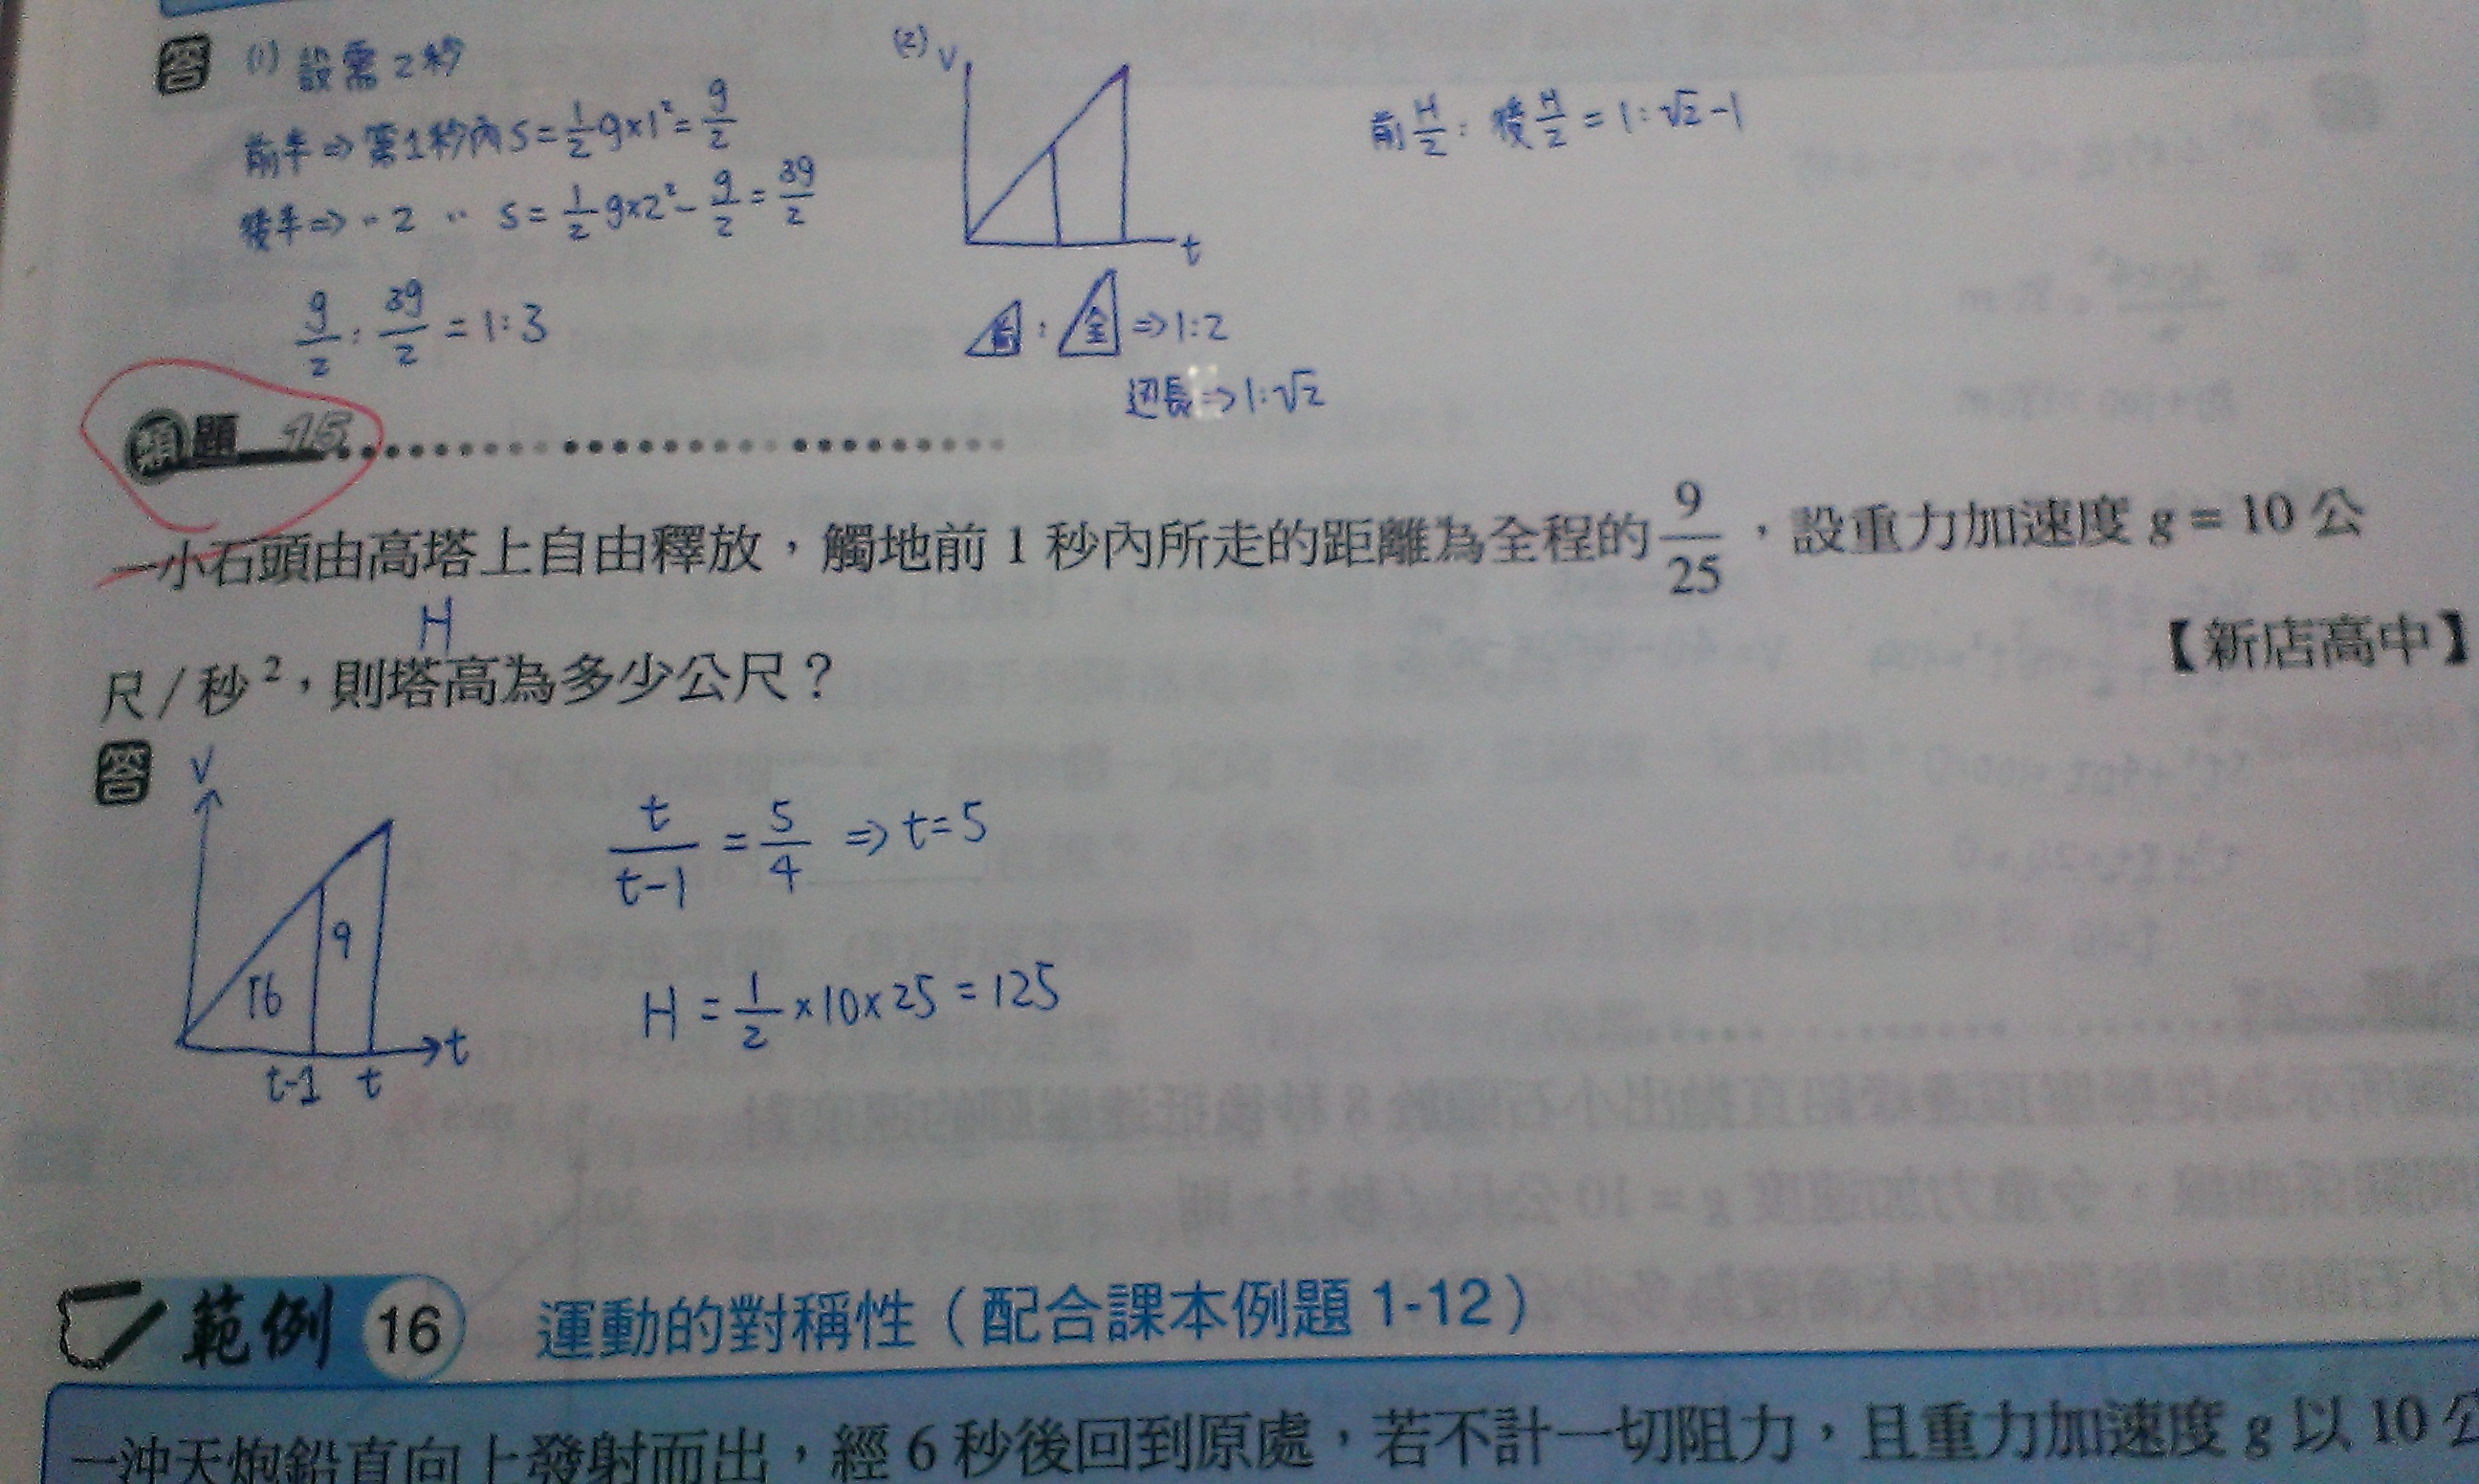 答 (1) 設需2秒
前半⇒第1秒內 S=½g×1²=g/2
後半⇒〃2〃 S=½g×2²-g/2=3g/2
g/2:3g/2=1:3
(2) V
t
前:全⇒1:2
边長⇒1:√2
前H/2:後H/2=1:√2-1
類題 15
一小石頭由高塔上自由釋放,觸地前 1 秒內所走的距離為全程的 9/25,設重力加速度 g = 10 公
H
尺/秒²,則塔高為多少公尺?
【新店高中】
答
V
16 9
t-1 t
t
t/(t-1) = 5/4 ⇒ t=5
H = ½×10×25 = 125
範例 16 運動的對稱性(配合課本例題 1-12)
一沖天炮鉛直向上發射而出,經 6 秒後回到原處,若不計一切阻力,且重力加速度 g 以 10 公